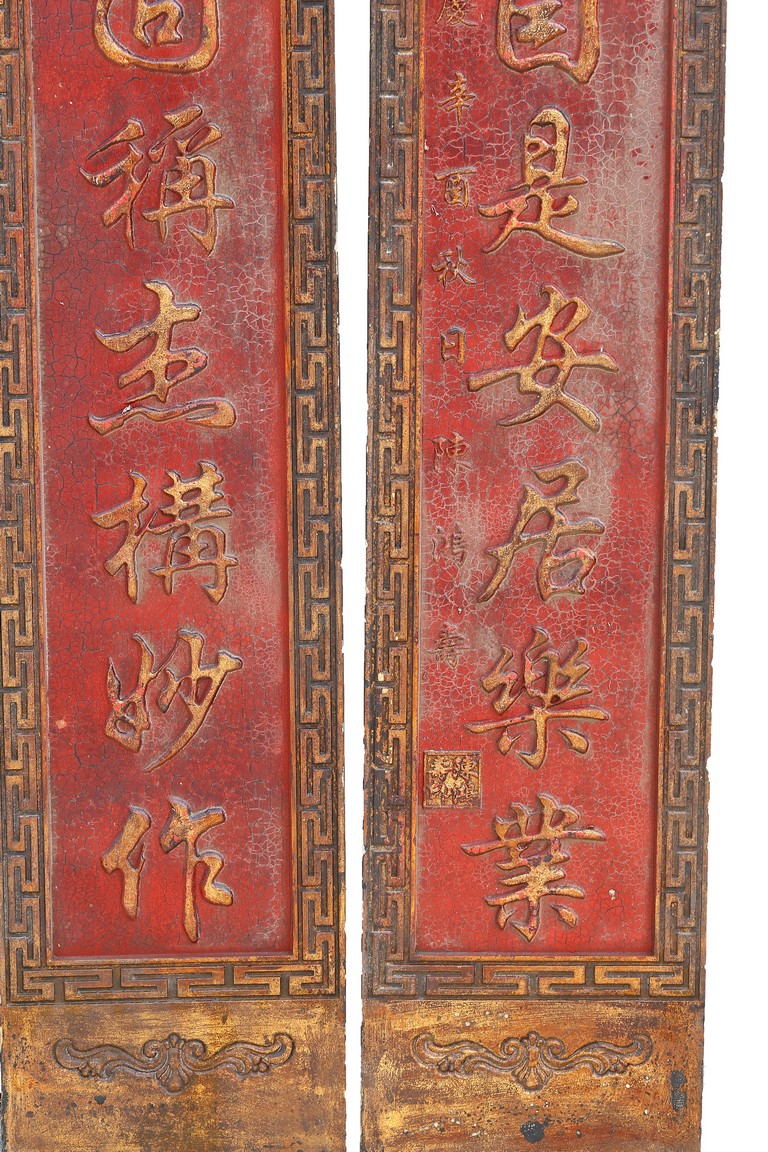 自是安居樂業
慶辛酉秋日陳鴻壽
固稱杰構妙作